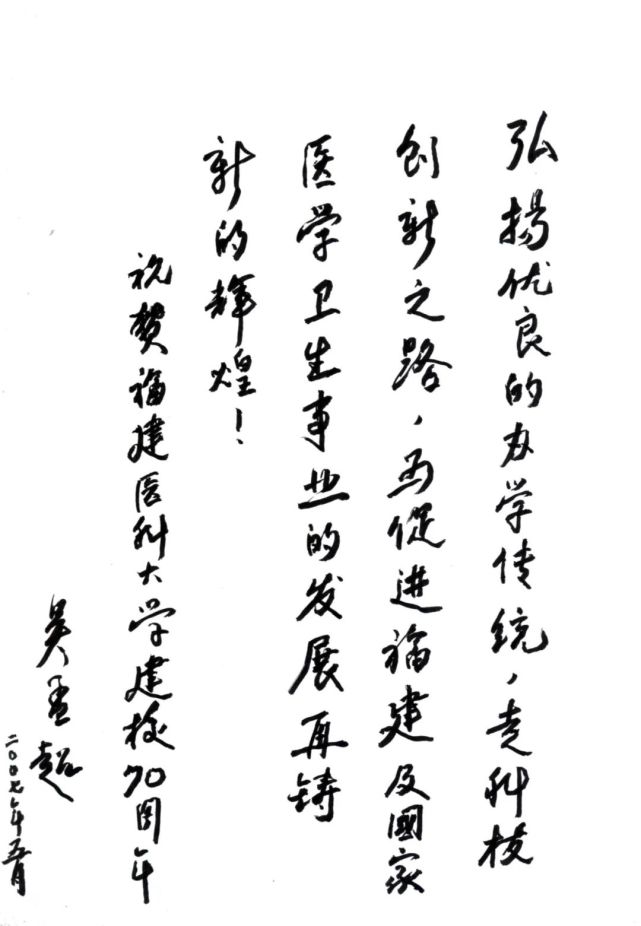 弘揚优良的办学传统，走科技
创新之路，为促进福建及國家
医学卫生事业的发展再铸
新的辉煌！
祝贺福建医科大学建校70周年
吴孟超
二〇〇七年五月